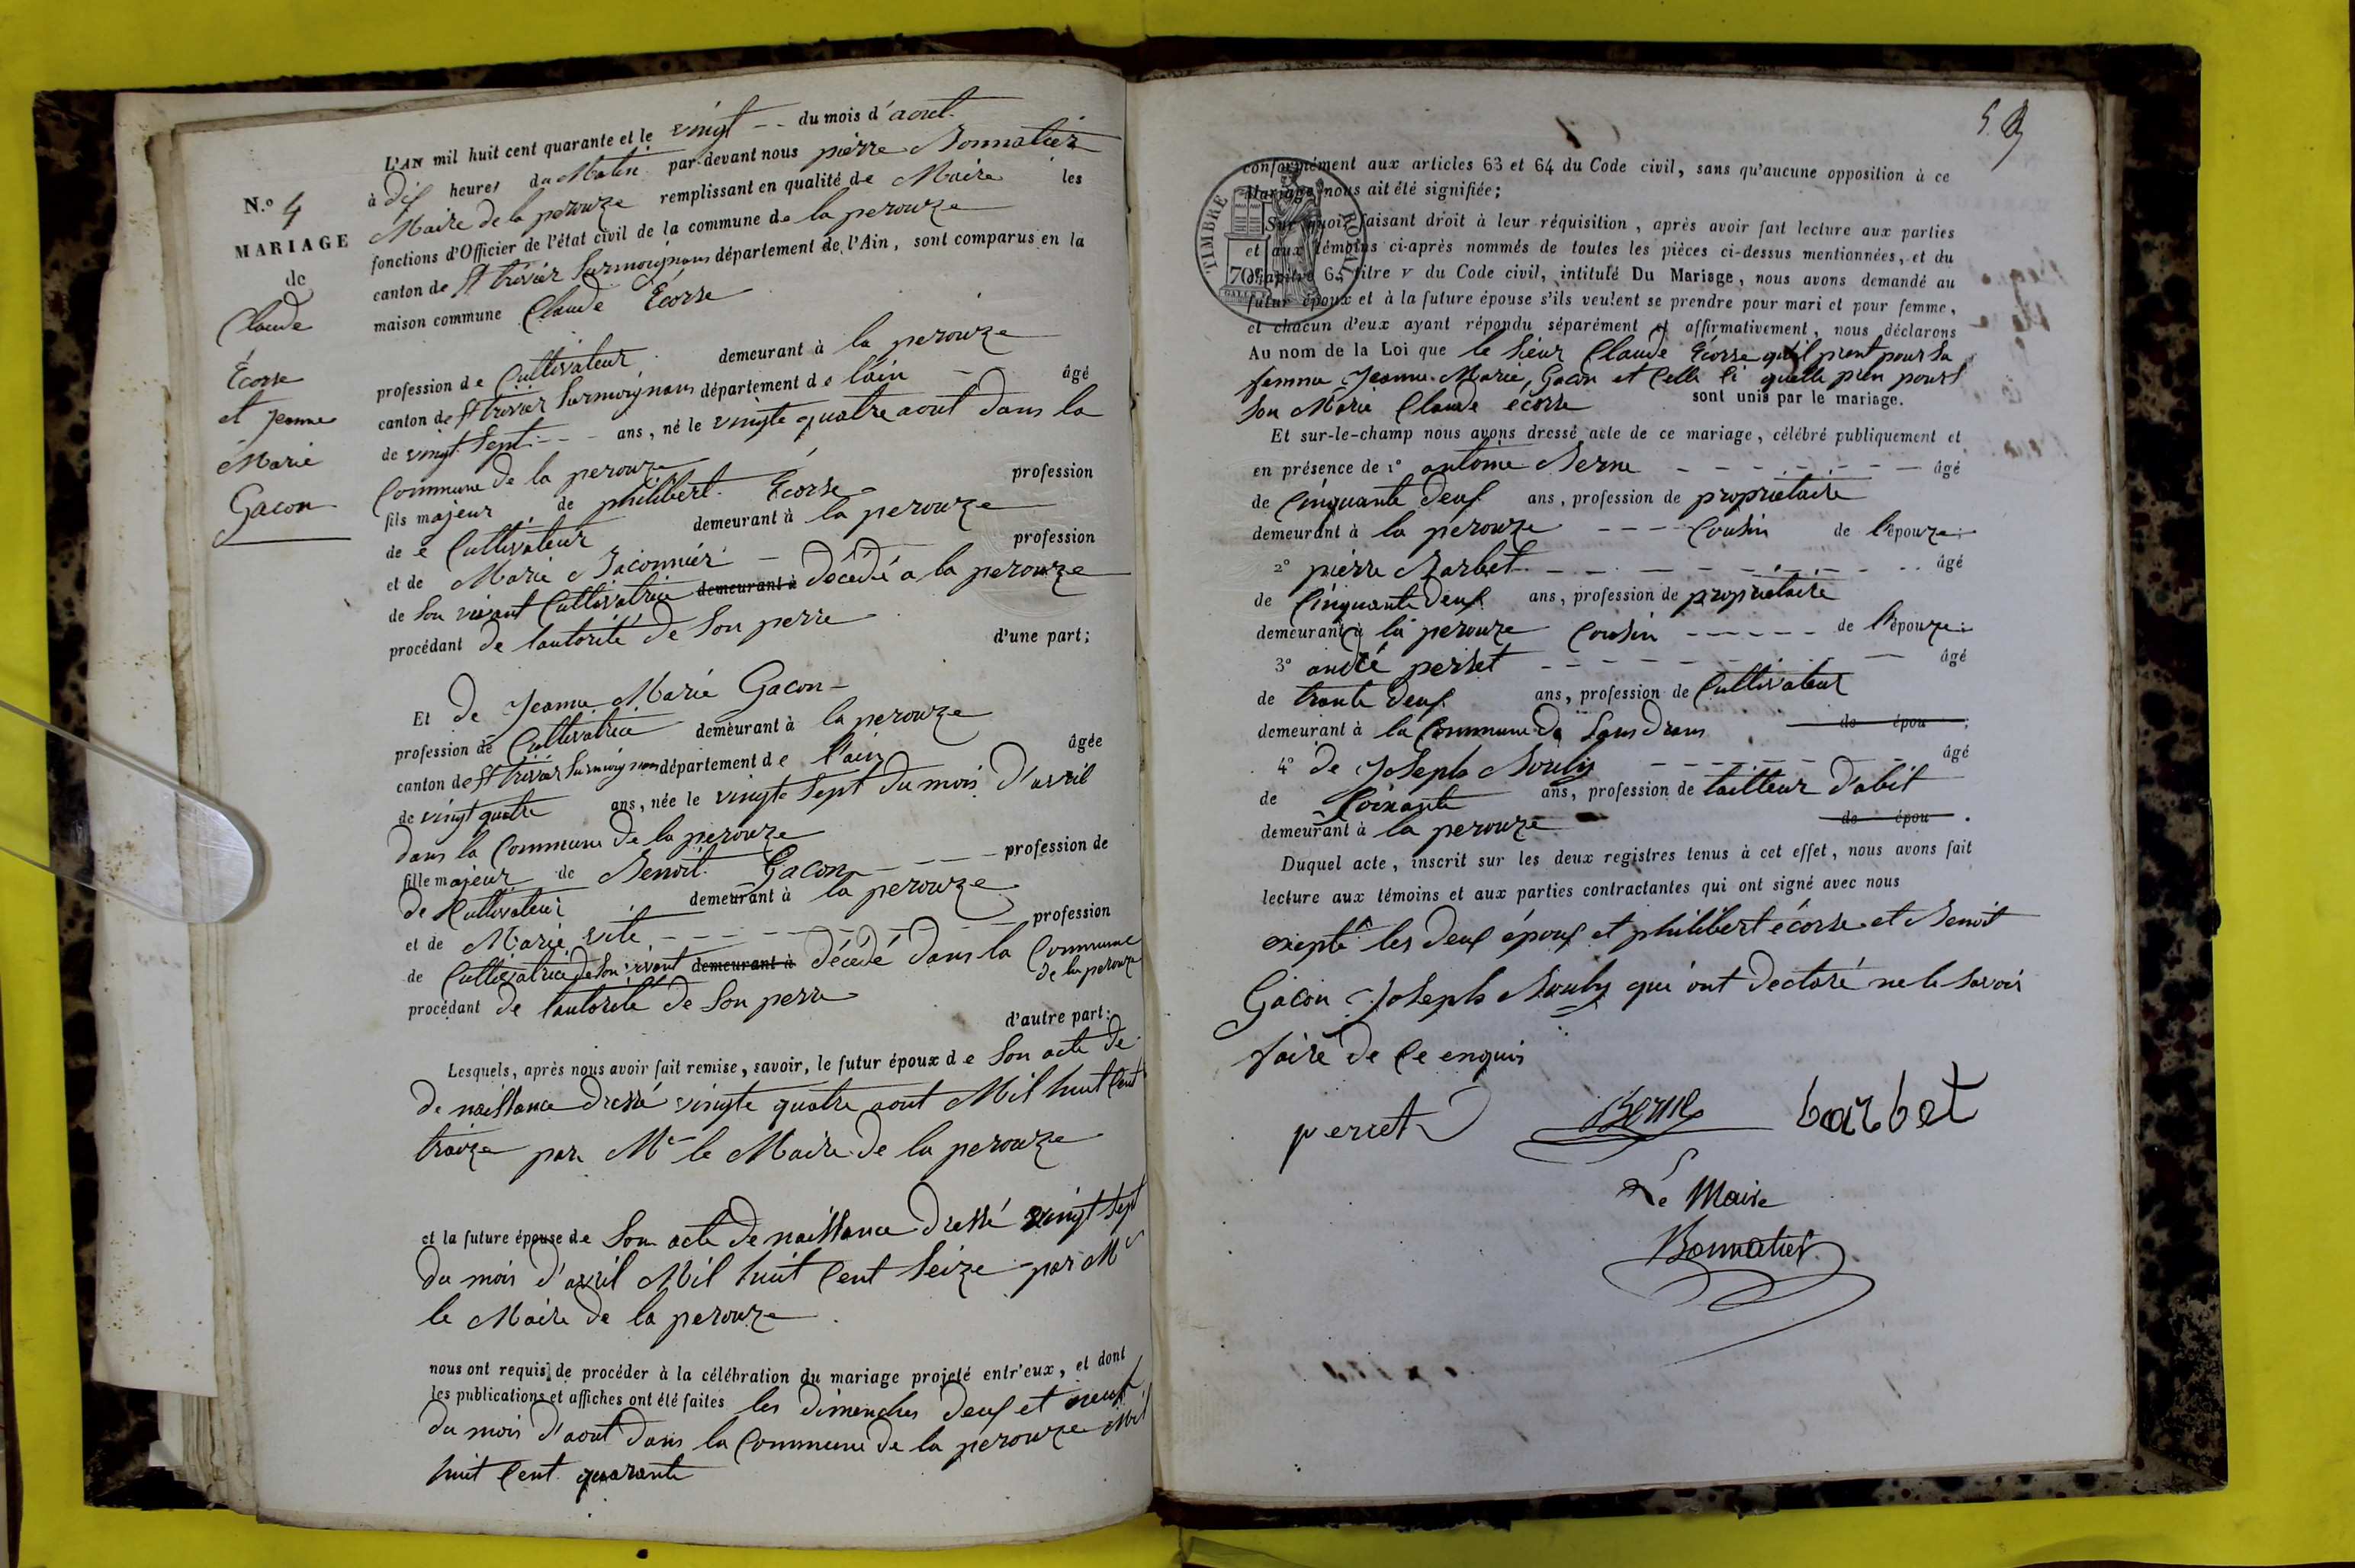 N.o 4
MARIAGE
de
Claude
Écorse
et jeanne
Marie
Gacon
L'AN mil huit cent quarante et le vingt -- du mois d'aout
à dix heures du Matin par-devant nous pierre Bonnatier
Maire de la perouze remplissant en qualité de Maire les
fonctions d'Officier de l'état civil de la commune de la perouze
canton de St trivier Surmoignans département de l'Ain, sont comparus en la
maison commune Claude Écorse
profession de Cultivateur demeurant à la perouze
canton de St trivier Surmoignans département de lain - - âgé
de vingt Sept - - - ans, né le vingte quatre aout dans la
Commune de la perouze
fils majeur de philibert Écorse profession
de e Cultivateur demeurant à la perouze
et de Marie profession
de Son vivant Cultivatrice demeurant à décédé a la perouze
procédant de lautorité de Son perre
d'une part;
Et de Jeanne Marie Gacon -
profession de Cultivatrice demeurant à la perouze
canton de St trivier Surmoignans département de l'ain âgée
de vingt quatre ans, née le vingte Sept du mois d'avril
dans la Commune de la perouze
fille majeur de Benoit Gacon - - - profession de
de Cultivateur demeurant à la perouze
et de Marie vité - - - - - - profession
de Cultivatrice de Son vivant demeurant à décédé dans la Commune
de la perouze
procédant de lautorité de Son perre
d'autre part:
Lesquels, après nous avoir fait remise, savoir, le futur époux de Son acte de
de naissance dressé vingte quatre aout Mil huit Cent
traize par Mr le Maire de la perouze
et la future épouse de Son acte de naissance dressé vingt Sept
du mois d'avril Mil huit Cent Seize par Mr
le Maire de la perouze
nous ont requis de procéder à la célébration du mariage projeté entr'eux, et dont
les publications et affiches ont été faites les dimenches deux et neuf
du mois d'aout dans la Commune de la perouze Mil
huit Cent quarante
conformément aux articles 63 et 64 du Code civil, sans qu'aucune opposition à ce
Mariage nous ait été signifiée;
Sur quoi, faisant droit à leur réquisition, après avoir fait lecture aux parties
et aux témoins ci-après nommés de toutes les pièces ci-dessus mentionnées, et du
chapitre 6, titre v du Code civil, intitulé Du Mariage, nous avons demandé au
futur époux et à la future épouse s'ils veulent se prendre pour mari et pour femme,
et chacun d'eux ayant répondu séparément et affirmativement, nous déclarons
TIMBRE ROYAL
70
Au nom de la Loi que le Sieur Claude Écorse qu'il prent pour Sa
femme Jeanne Marie, Gacon et Celle Ci quelle pren pour
Son Marie Claude écorse sont unis par le mariage.
Et sur-le-champ nous avons dressé acte de ce mariage, célébré publiquement et
en présence de 1o antoine Berne - - - - - - âgé
de Cinquante deux ans, profession de propriétaire
demeurant à la perouze - - - Cousin de l'épouze
2o pierre Barbet - - - - - - âgé
de Cinquante deux ans, profession de propriétaire
demeurant à la perouze Cousin - - - - - de l'épouze
3o andré perret - - - - - - âgé
de trante deux ans, profession de Cultivateur
demeurant à la Commune de Sandrans de épou ;
4o de Joseph Bouby - - - - - âgé
de Soixante ans, profession de tailleur d'abit
demeurant à la perouze de épou .
Duquel acte, inscrit sur les deux registres tenus à cet effet, nous avons fait
lecture aux témoins et aux parties contractantes qui ont signé avec nous
exepté les deux époux et philibert écorse et Benoit
Gacon Joseph Bouby qui ont declaré ne le Savoir
faire de Ce enquis
perret Berne barbet
Le Maire
Bonnatier